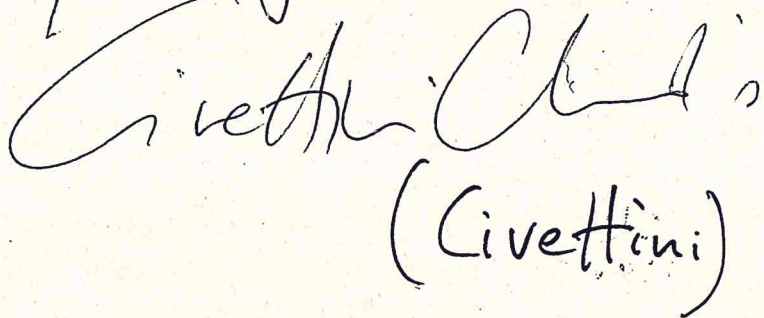 Civettini
(Civettini)